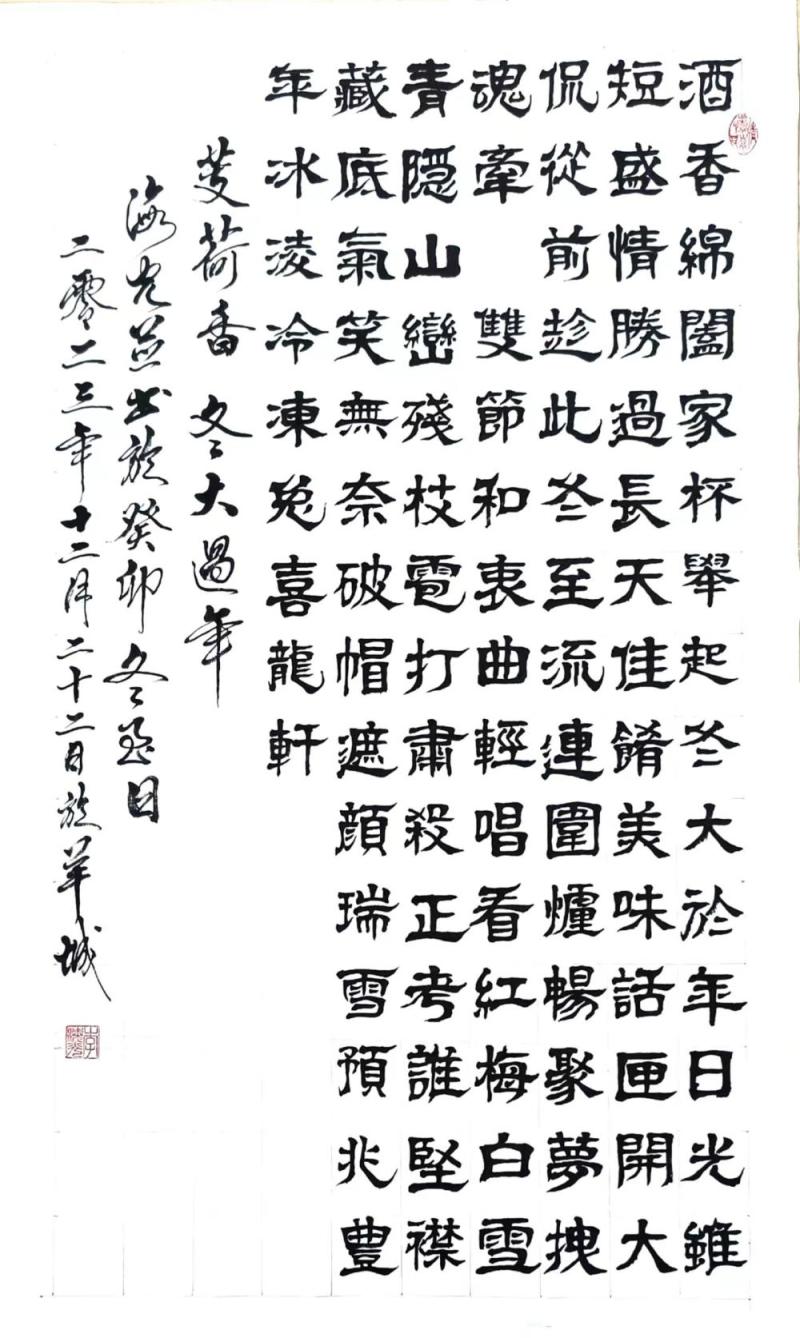 酒香綿闔家杯舉起冬大於年日光雖
短盛情勝過長天佳餚美味話匣開大
侃從前趁此冬至流連圍爐暢聚夢拽
魂牽 雙節和衷曲輕唱看紅梅白雪
青隱山巒殘枝雹打肅殺正考誰堅襟
藏底氣笑無奈破帽遮顏瑞雪預兆豐
年冰凌冷凍兔喜龍軒
芰荷香 冬大過年
海光並書於癸卯冬至日
二零二三年十二月二十二日於羊城